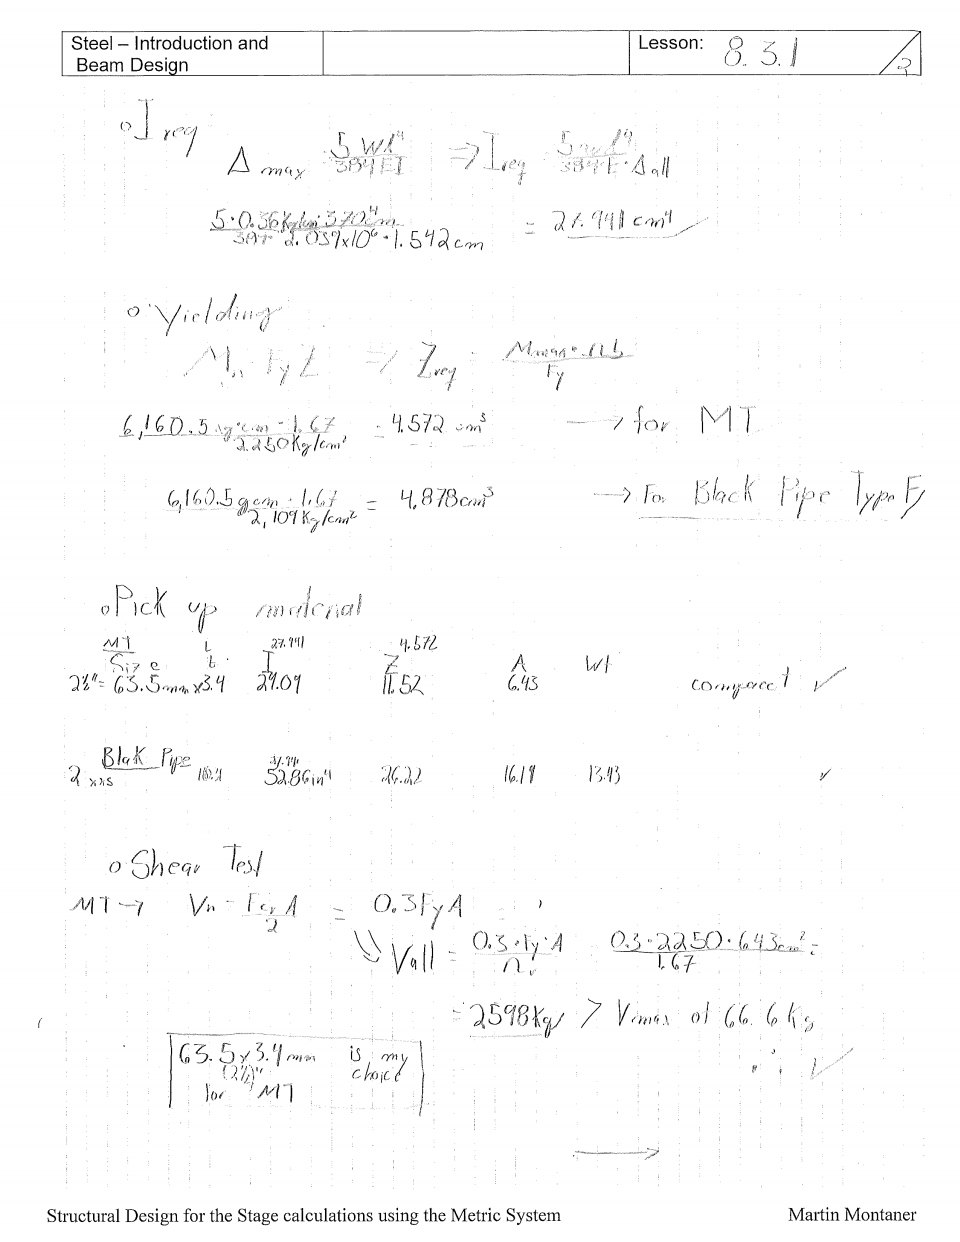 Steel – Introduction and Lesson: 8.3.1
Beam Design
o I req
Δ max 5 Wl⁴ / 384 EI ⇒ I req 5 wl⁴ / 384 E · Δ all
5·0.36 Kg/cm·370⁴cm / 384· 2.039x10⁶ · 1.542 cm = 27.941 cm⁴
o Yielding
Mn Fy Z ⇒ Z req Mmax · Ωb / Fy
6,160.5 kg·cm · 1.67 / 2.250 Kg/cm² = 4.572 cm³ → for MT
6,160.5 gcm · 1.67 / 2,109 Kg/cm² = 4.878cm³ → For Black Pipe Type F
o Pick up material
MT 27.941 4.572
Size t I Z A Wt
2½"= 63.5mm x3.4 29.09 11.52 6.43 compact ✓
Blak Pipe
2 xxs 52.86in⁴ 26.22 16.19 13.43 ✓
o Shear Test
MT → Vn = Fcr A / 2 = 0.3FyA
Vall = 0.3·Fy·A / Ωv 0.3·2250·6.43cm² / 1.67 =
= 2598Kg > Vmax of 66.6Kg
✓
63.5x3.4mm is my
(2½)" choice
for MT
→
Structural Design for the Stage calculations using the Metric System Martin Montaner